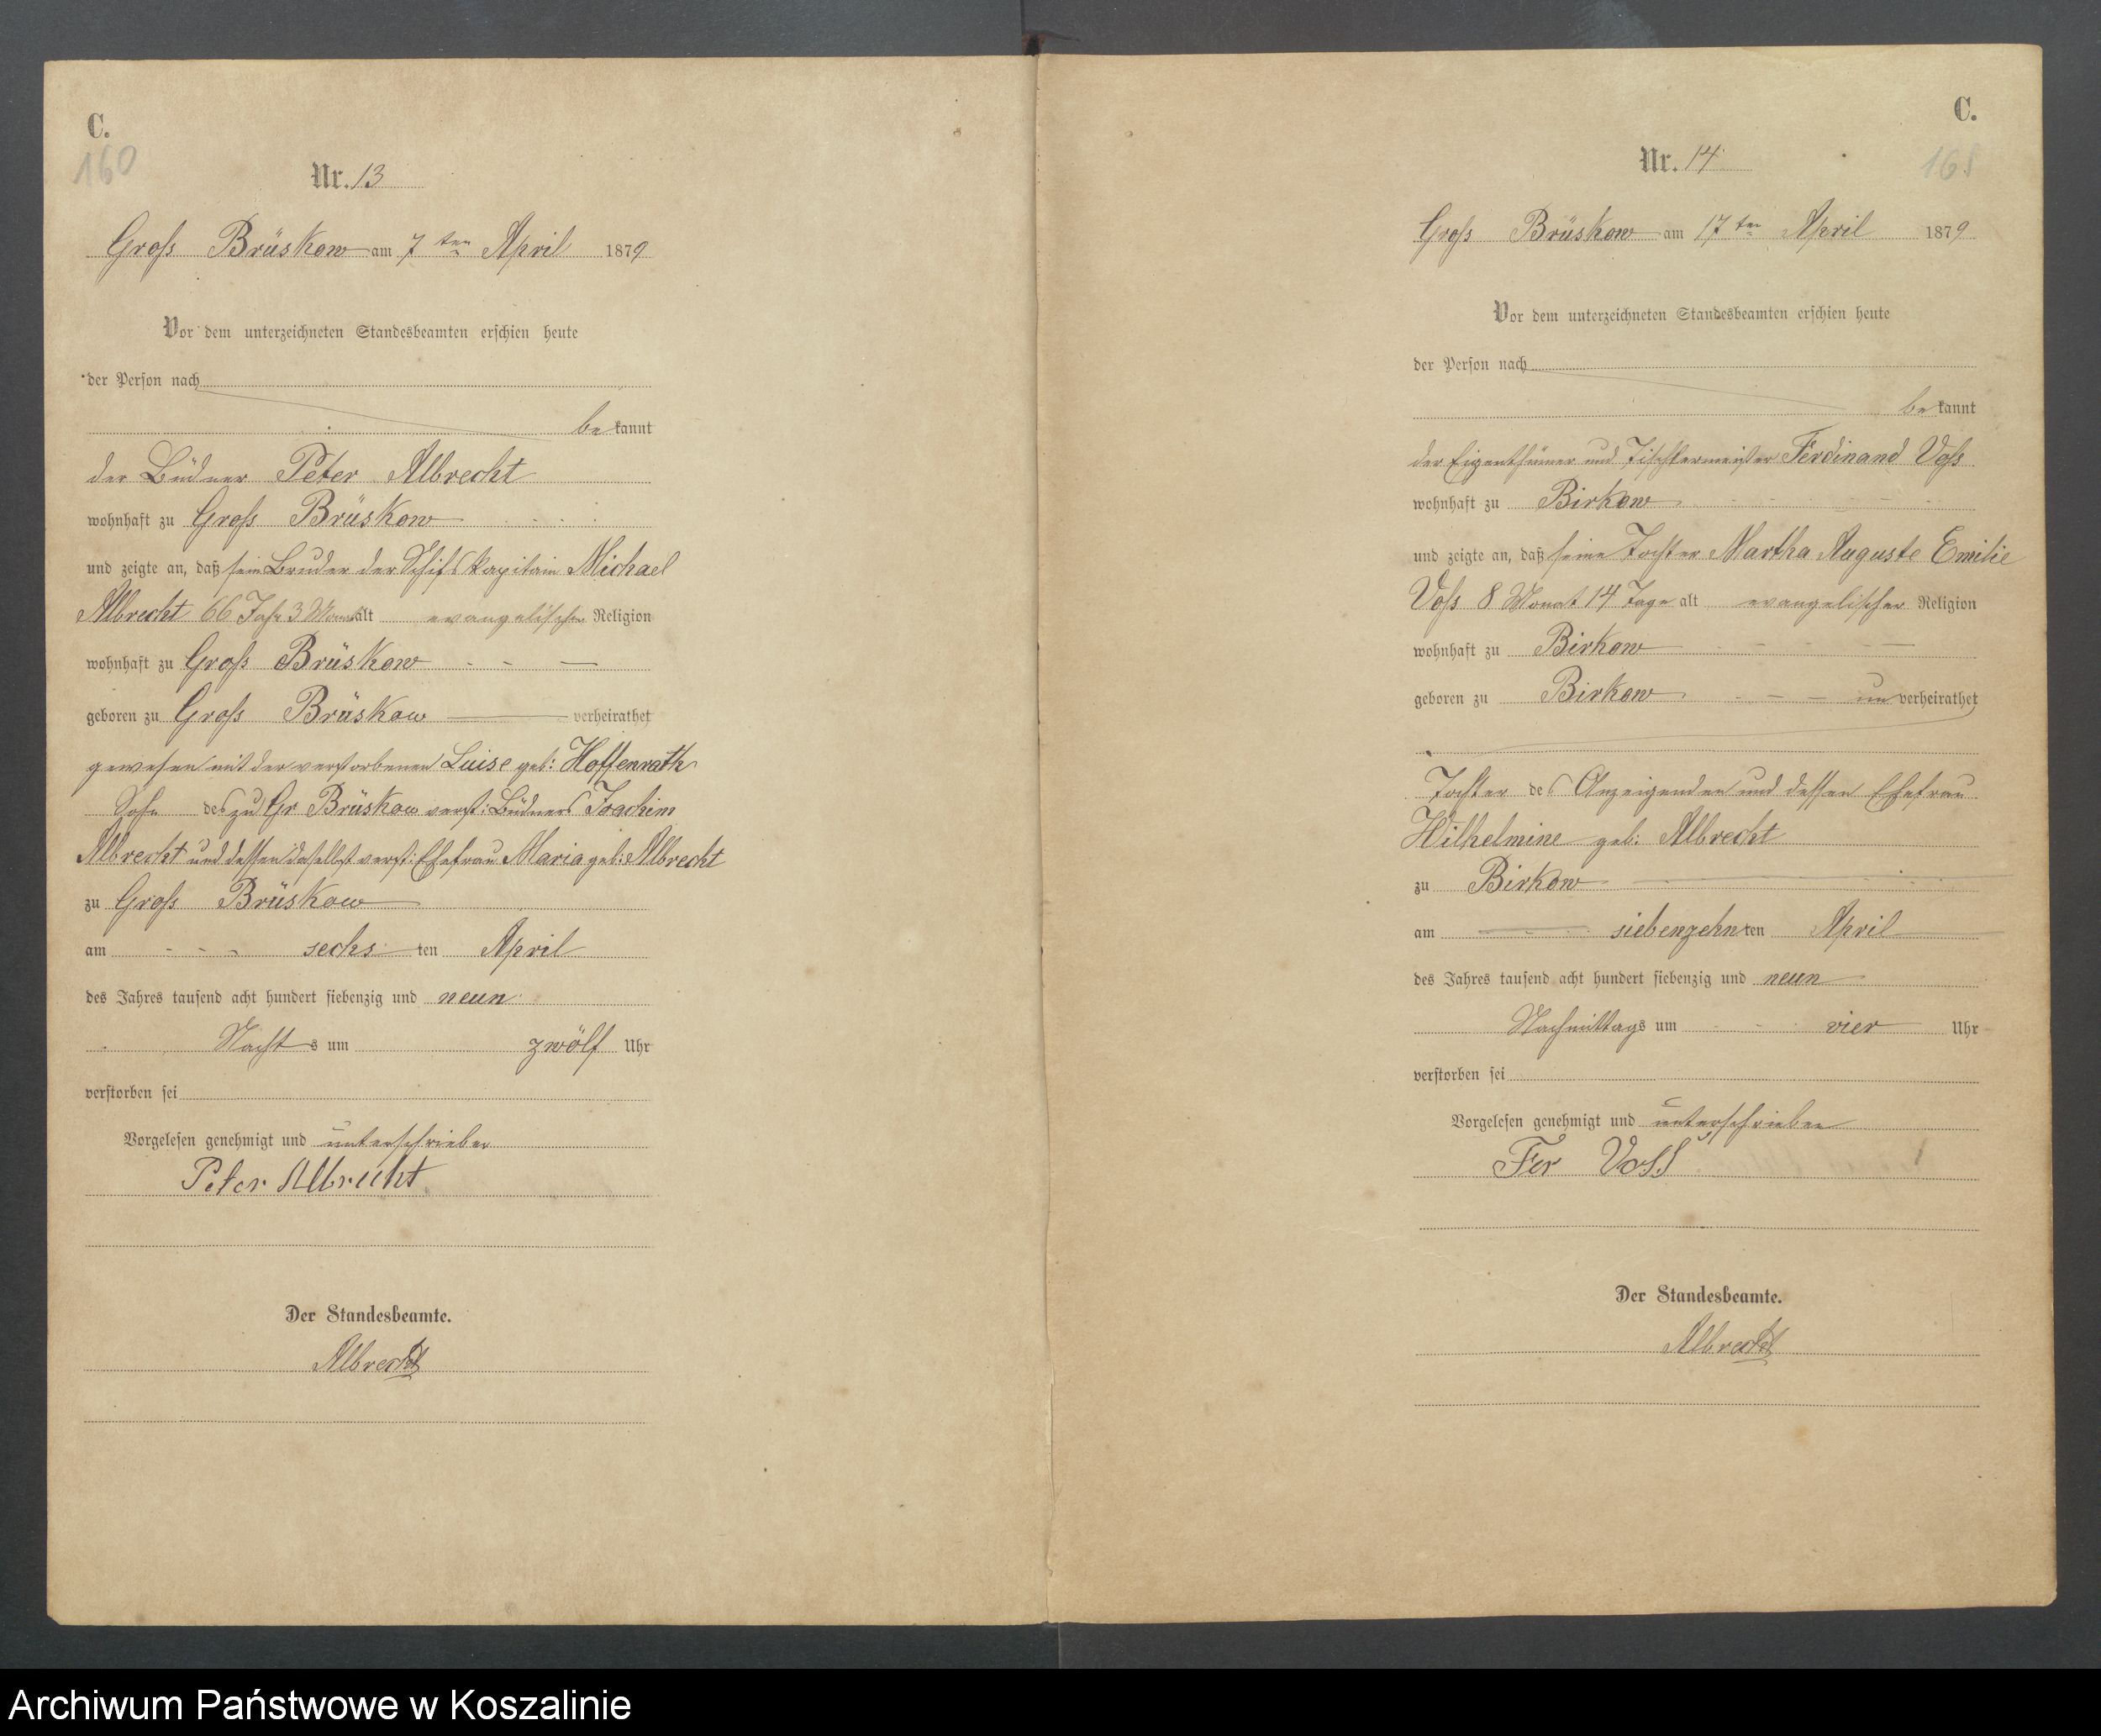 C.
160
Nr. 13
Groß Brüskow am 7ten April 1879
Vor dem unterzeichneten Standesbeamten erschien heute
der Person nach
be kannt
der Büdner Peter Albrecht
wohnhaft zu Groß Brüskow
und zeigte an, daß sein Bruder der Schifskapitain Michael
Albrecht 66 Jahr 3 Monat alt evangelischer Religion
wohnhaft zu Groß Brüskow
geboren zu Groß Brüskow verheirathet
gewesen mit der verstorbenen Luise geb: Hoffenrath
Sohn des zu Gr Brüskow verst: Büdners Joachim
Albrecht und dessen daselbst verst: Ehefrau Maria geb: Albrecht
zu Groß Brüskow
am sechs ten April
des Jahres tausend acht hundert siebenzig und neun
Nacht s um zwölf Uhr
verstorben sei
Vorgelesen genehmigt und unterschrieben
Peter Albrecht
Der Standesbeamte.
Albrecht
C.
Nr. 14
Groß Brüskow am 17ten April 1879
Vor dem unterzeichneten Standesbeamten erschien heute
der Person nach
be kannt
der Eigenthümer und Tischlermeister Ferdinand Voß
wohnhaft zu Birkow
und zeigte an, daß seine Tochter Martha Auguste Emilie
Voß 8 Monat 14 Tage alt evangelischer Religion
wohnhaft zu Birkow
geboren zu Birkow un verheirathet
Tochter des Anzeigenden und dessen Ehefrau
Wilhelmine geb: Albrecht
zu Birkow
am siebenzehn ten April
des Jahres tausend acht hundert siebenzig und neun
Nachmittags um vier Uhr
verstorben sei
Vorgelesen genehmigt und unterschrieben
Fer Voss
Der Standesbeamte.
Albrecht
Archiwum Państwowe w Koszalinie